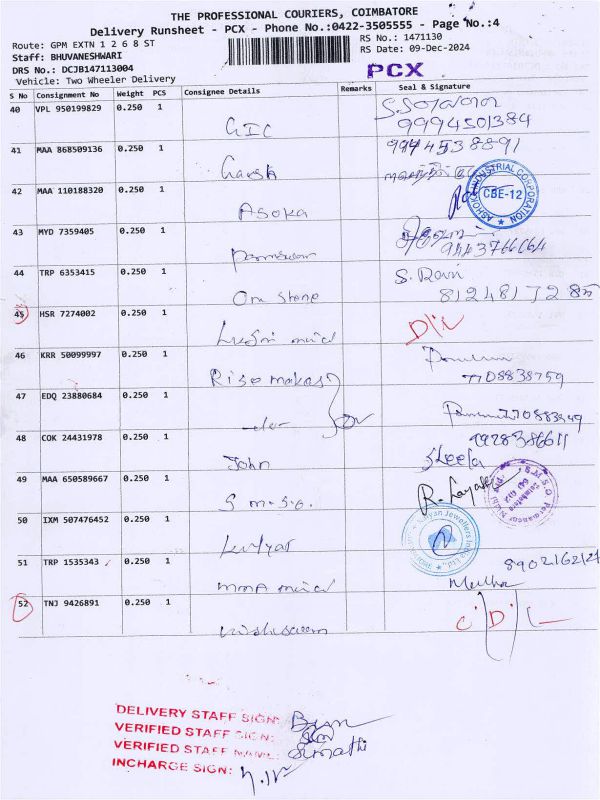 THE PROFESSIONAL COURIERS, COIMBATORE
Delivery Runsheet - PCX - Phone No.:0422-3505555 - Page No.:4
Route: GPM EXTN 1 2 6 8 ST
RS No.: 1471130
Staff: BHUVANESHWARI
RS Date: 09-Dec-2024
DRS No.: DCJB147113004
PCX
Vehicle: Two Wheeler Delivery
S No Consignment No Weight PCS Consignee Details Remarks Seal & Signature
40 VPL 950199829 0.250 1
GIC
9994501384
41 MAA 868509136 0.250 1
Harsh
9944538891
42 MAA 110188320 0.250 1
Asoka
ASHOKA INDUSTRIAL CORPORATION
CBE-12
43 MYD 7359405 0.250 1
9443766064
44 TRP 6353415 0.250 1
Om Stone
S. Ravi
45 HSR 7274002 0.250 1
D/L
46 KRR 50099997 0.250 1
Rise makas
7708838759
47 EDQ 23880684 0.250 1
48 COK 24431978 0.250 1
John
Sheela
49 MAA 650589667 0.250 1
S m. s. o.
50 IXM 507476452 0.250 1
51 TRP 1535343 0.250 1
52 TNJ 9426891 0.250 1
C D L
DELIVERY STAFF SIGN:
VERIFIED STAFF SIGN:
VERIFIED STAFF NAME: Sumathi
INCHARGE SIGN: